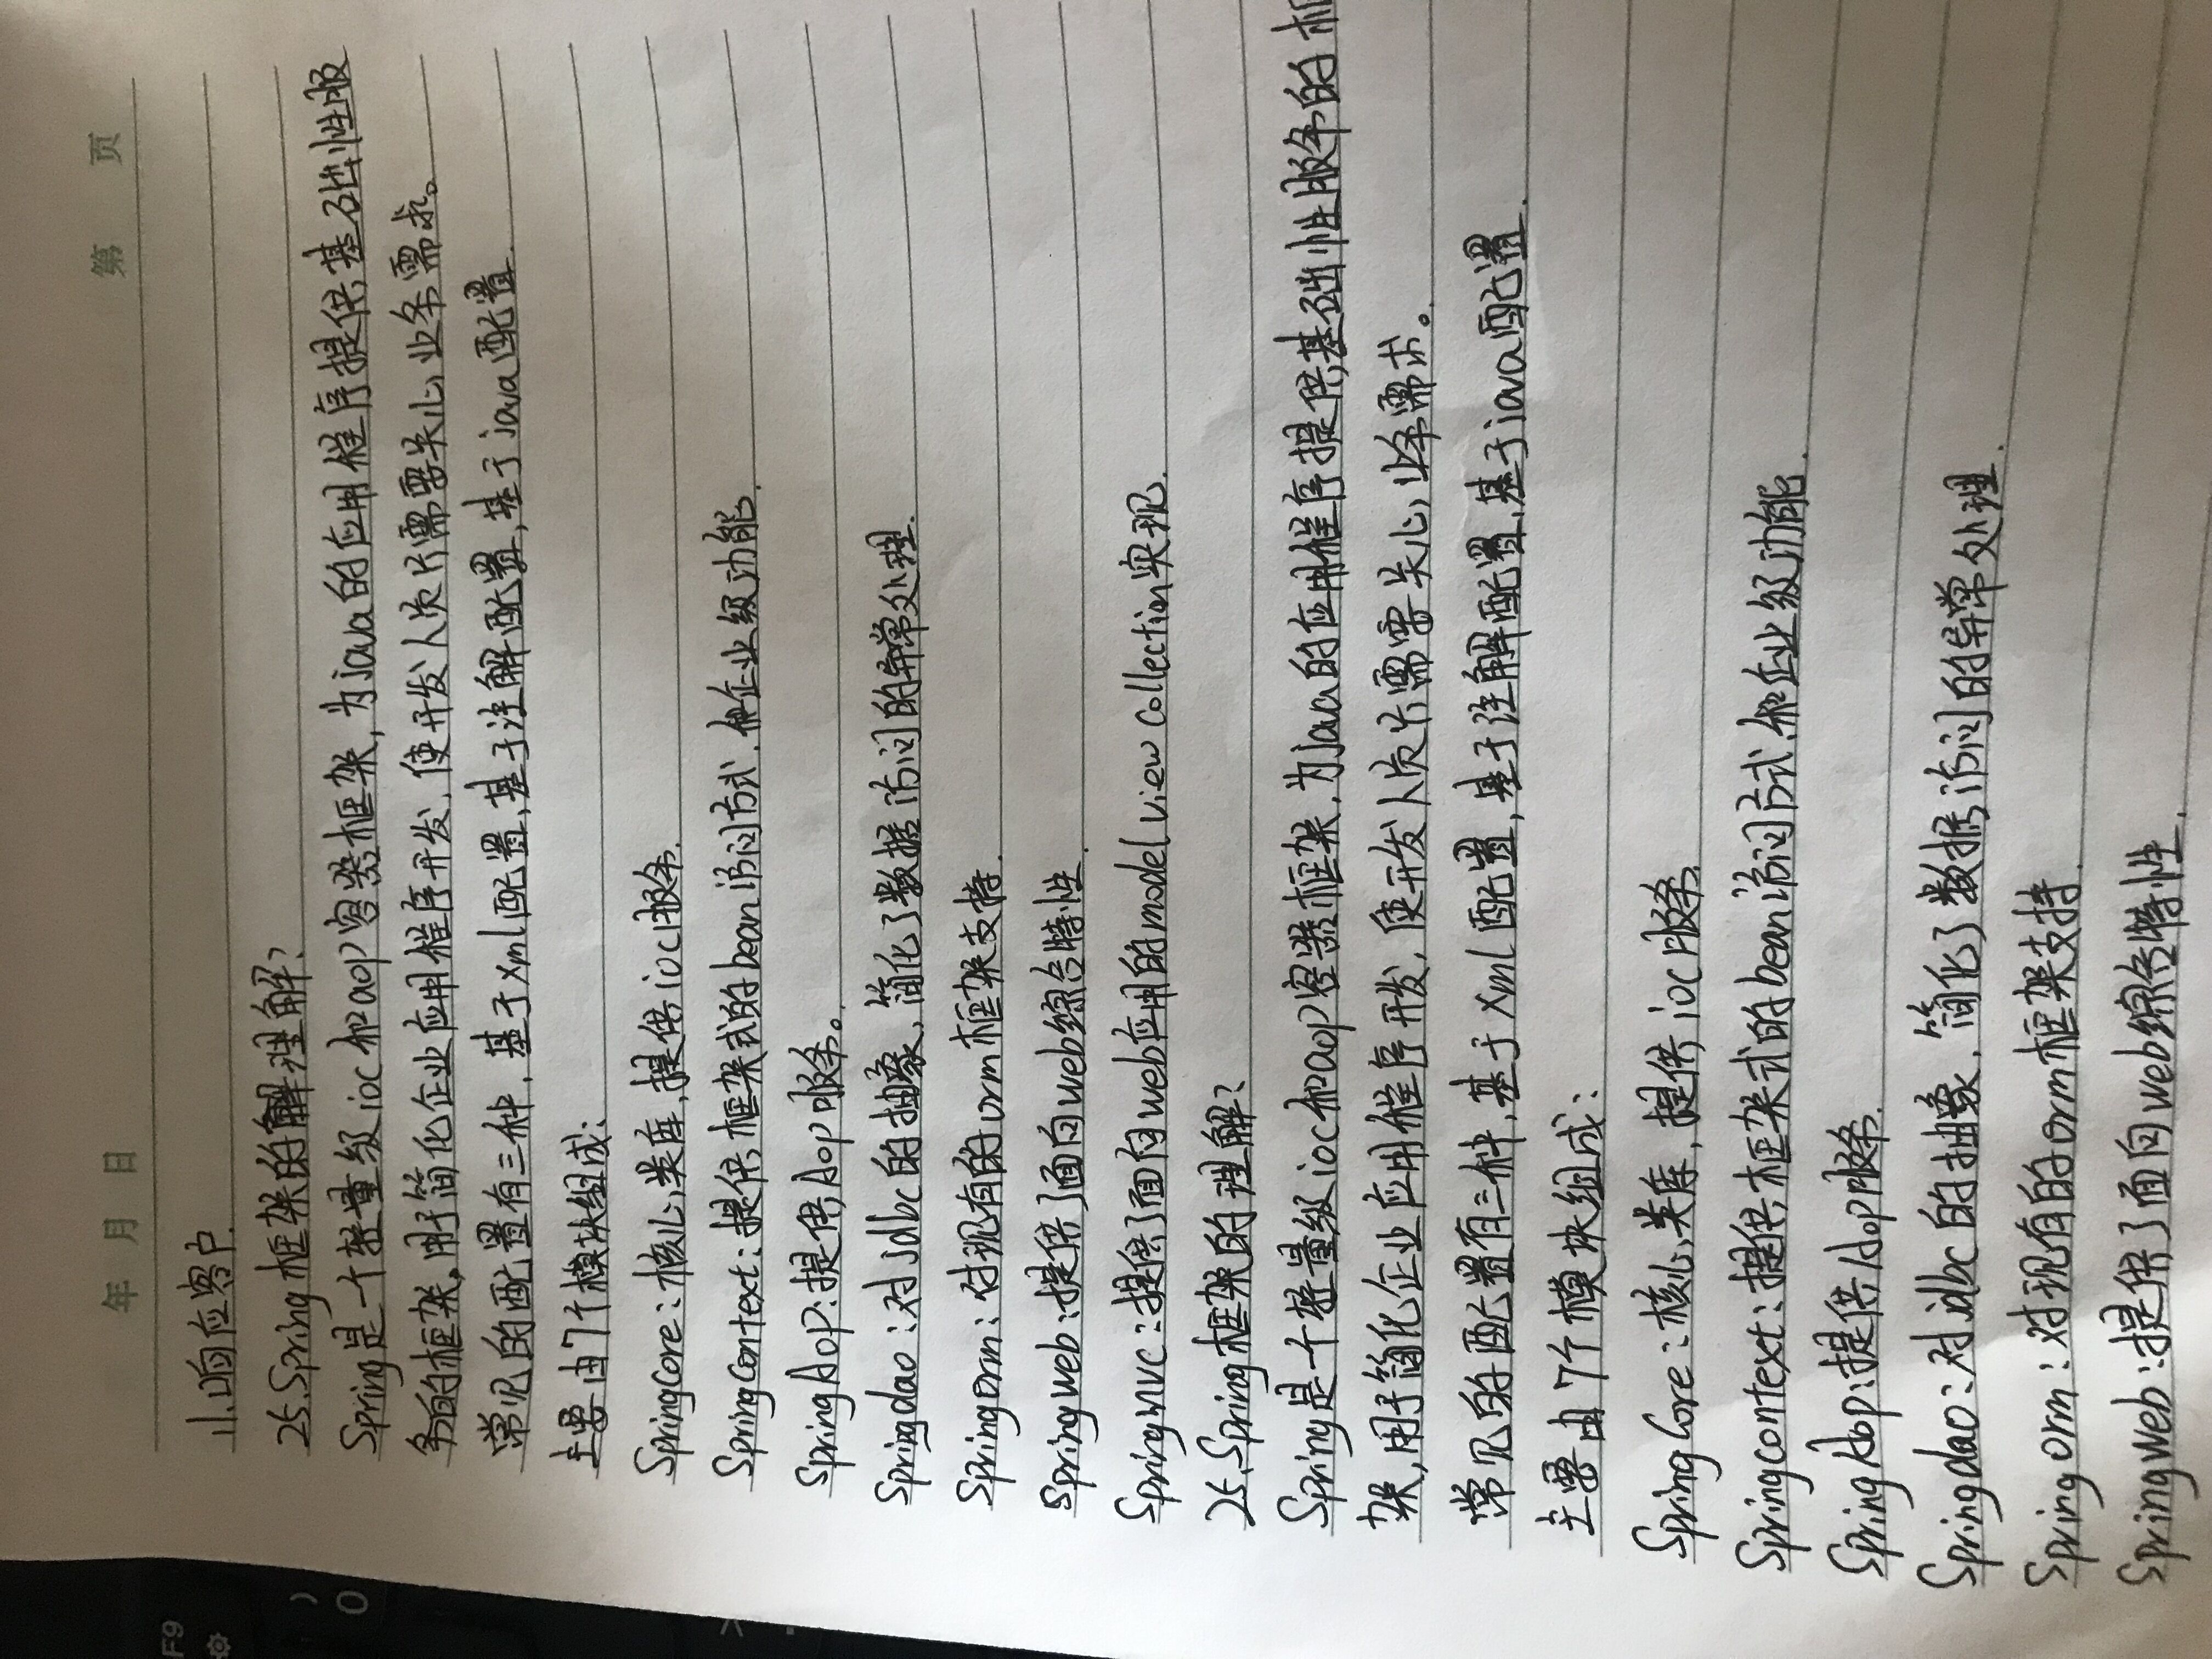 年 月 日 第 页
F9
11.响应客户.
)
25.Spring框架的解理解?
0
Spring是一个轻量级ioc和aop容器框架,为java的应用程序提供基础性服
务的框架。用于简化企业应用程序开发,使开发人员只需要关心业务需求。
常见的配置有三种,基于xml配置,基于注解配置,基于java配置.
主要由7个模块组成:
Springcore:核心类库,提供ioc服务.
>
Springcontext:提供框架式的bean访问方式,和企业级功能.
SpringAop:提供Aop服务。
Springdao:对jdbc的抽象,简化了数据访问的异常处理.
Springorm:对现有的orm框架支持.
Springweb:提供了面向web综合特性.
Springmvc:提供了面向web应用的model view collection实现.
25.Spring框架的理解?
Spring是一个轻量级ioc和aop容器框架,为java的应用程序提供基础性服务的框
架,用于简化企业应用程序开发,使开发人员只需要关心业务需求。
常见的配置有三种,基于xml配置,基于注解配置,基于java配置.
主要由7个模块组成:
SpringCore:核心类库,提供ioc服务.
Springcontext:提供框架式的bean访问方式,和企业级功能.
SpringAop:提供Aop服务.
Springdao:对jdbc的抽象,简化了数据访问的异常处理.
Springorm:对现有的orm框架支持.
Springweb:提供了面向web综合特性.